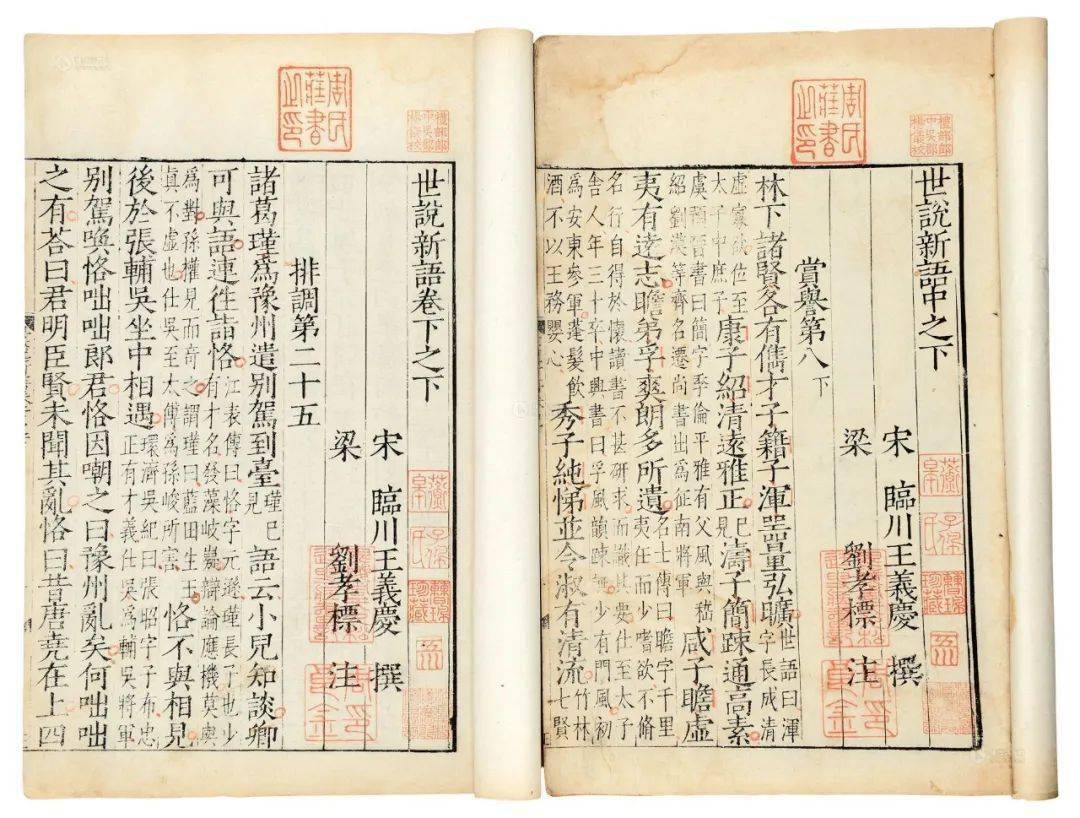 世說新語中之下
宋 臨川王義慶 撰
梁 劉孝標 注
賞譽第八 下
林下諸賢各有儁才子籍子渾器量弘曠 世語曰渾字長成清
虛寡欲位至太子中庶子 康子紹清遠雅正 已見 濤子簡踈通高素
虞預晉書曰簡字季倫平雅有父風與嵇紹劉漢等齊名遷尚書出為征南將軍 咸子瞻虛
夷有遠志瞻弟孚爽朗多所遺 名士傳曰瞻字千里夷任而少嗜欲不脩
名行自得於懷讀書不甚研求而識其要仕至太子舍人年三十卒中興書曰孚風韻踈誕少有門風初
為安東參軍蓬髮飲酒不以王務嬰心 秀子純悌並令淑有清流 竹林七賢
周氏藏書之印
世說新語卷下之下
宋 臨川王義慶 撰
梁 劉孝標 注
排調第二十五
諸葛瑾為豫州遣別駕到臺 瑾已見 語云小兒知談卿
可與語連往詣恪 江表傳曰恪字元遜瑾長子也少有才名發藻岐嶷辯論應機莫與
為對孫權見而奇之謂瑾曰藍田生玉真不虛也仕吳至太傅為孫峻所害 恪不與相見
後於張輔吳坐中相遇 環濟吳紀曰張昭字子布忠正有才義仕吳為輔吳將軍
別駕喚恪咄咄郎君恪因嘲之曰豫州亂矣何咄咄
之有荅曰君明臣賢未聞其亂恪曰昔唐堯在上四
周氏藏書之印